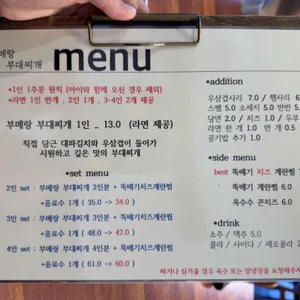 부메랑
부대찌개
menu
*1인 1주문 원칙 (아이와 함께 오신 경우 제외)
*라면 1인 반개 , 2인 1개 , 3-4인 2개 제공
부메랑 부대찌개 1인 _ 13.0 (라면 제공)
직접 담근 대파김치와 우삼겹이 들어가
시원하고 깊은 맛의 부대찌개
*set menu
2인 set : 부메랑 부대찌개 2인분 + 뚝배기치즈계란찜
+음료수 1개 ( 35.0 -> 34.0 )
3인 set : 부메랑 부대찌개 3인분 + 뚝배기치즈계란찜
+음료수 1개 ( 48.0 -> 47.0 )
4인 set : 부메랑 부대찌개 4인분 + 뚝배기치즈계란찜
+음료수 1개 ( 61.0 -> 60.0 )
*addition
우삼겹사리 7.0 / 햄사리 6
스팸 5.0 소세지 5.0 반반 5.
당면 2.0 / 치즈 1.0 / 두부
라면 한 개 1.0 반 개 0.5
공기밥 추가 1.0
*side menu
best 뚝배기 치즈 계란찜
뚝배기 계란찜 6.0
옥수수 콘치즈 6.0
*drink
소주 / 맥주 5.0
콜라 / 사이다 / 제로콜라
짜거나 싱거울 경우 육수 또는 양념장을 요청해주세